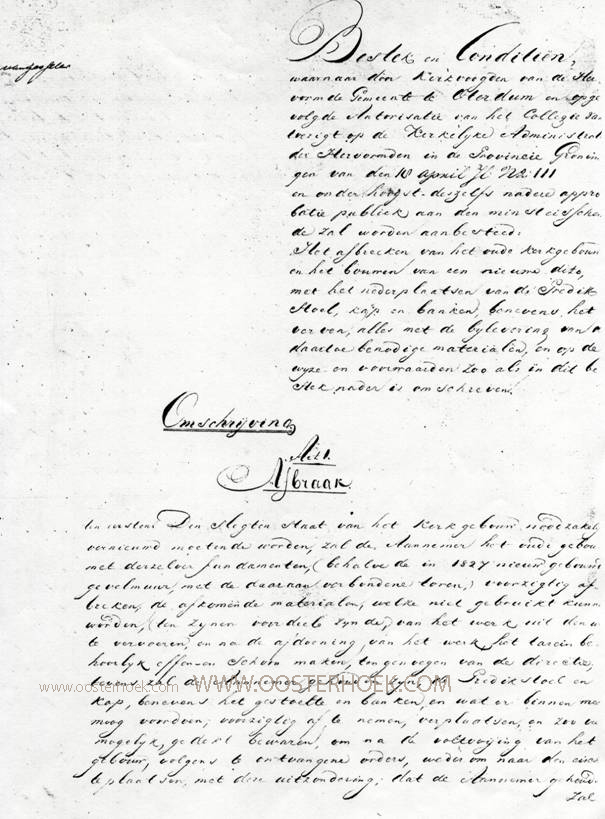 Bestek en Conditiën,
waarnaar door Kerkvoogden van de Her
vormde Gemeente te Oterdum en opge
volgde Autorisatie van het Collegie
toezigt op de Kerkelyke Administrat
der Hervormden in de Provincie Gronin
gen van den 18 april Jl. No. 111
en onder hoogst-deszelfs nadere appro
batie publiek aan den minsteisschen
de zal worden aanbesteed:
Het afbreeken van het oude Kerkgebouw
en het bouwen van een nieuwe dito,
met het nederplaatsen van de Predik
Stoel, kap en banken, benevens het
verven, alles met de bylevering van
daartoe benodige materialen, en op de
wyze en voorwaarden zoo als in dit be
stek nader is omschreven.
Omschryving
Art 1.
Afbraak
ten eersten Den slegten Staat van het Kerkgebouw noodzakel
vernieuwd moetende worden, zal de Aannemer het oude gebou
met derzelver fundamenten, (behalve de in 1827 nieuw gebouwd
gevelmuur, met de daaraan verbondene toren,) voorzigtig af
breeken, de afkomende materialen, welke niet gebruikt kunn
worden, (ten zynen voordeele zynde,) van het werk
te vervoeren, en na de afdoening van het werk het terein be
hoorlyk effen en schoon maken, ten genoegen van de directie,
tevens zal de Aannemer gehouden zyn de Predikstoel en
Kap, benevens het gestoelte en banken en wat er binnen me
moog voordoen, voorzigtig af te nemen, verplaatsen, en zoo
mogelyk, gedekt bewaren, om na de voltooijing van het
gebouw, volgens te ontvangene orders, wederom naar den eisch
te plaatsen, met deze uitzondering, dat de Aannemer gehoud
zal
www.oosterhoek.com
WWW.OOSTERHOEK.COM